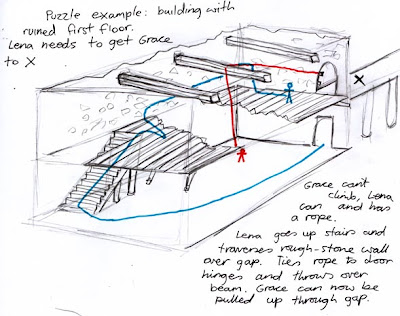 Puzzle example: building with
ruined first floor.
Lena needs to get Grace
to X
X
Grace can't
climb, Lena
can and has
a rope.
Lena goes up stairs and
traverses rough-stone wall
over gap. Ties rope to door
hinges and throws over
beam. Grace can now be
pulled up through gap.